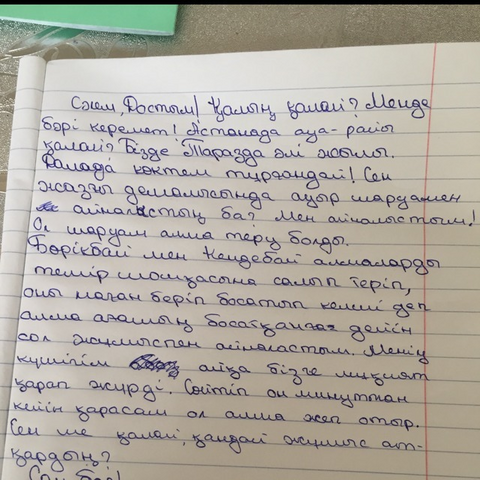 Сәлем, Достым! Қалың қалай? Менде
бәрі керемет! Астанада ауа-райы
қалай? Бізде Таразда әлі жылы.
Далада көктем тұрғандай! Сен
жазғы демалысында ауыр шаруамен
айналыстың ба? Мен айналыстым!
Ол шаруам алма теру болды.
Бөрікбай мен Кендебай алмаларды
темір шошқасына салып теріп,
оны маған беріп босатып келші деп
алма ағашың босатқанға дейін
сол жұмыспен айналастым. Менің
күшігім алқа бізге мұқият
қарап жүрді. Сөйтіп он минуттан
кейін қарасам ол алма жеп отыр.
Сен ше қалай, қандай жұмыс ат-
қардың?
Сау бол!